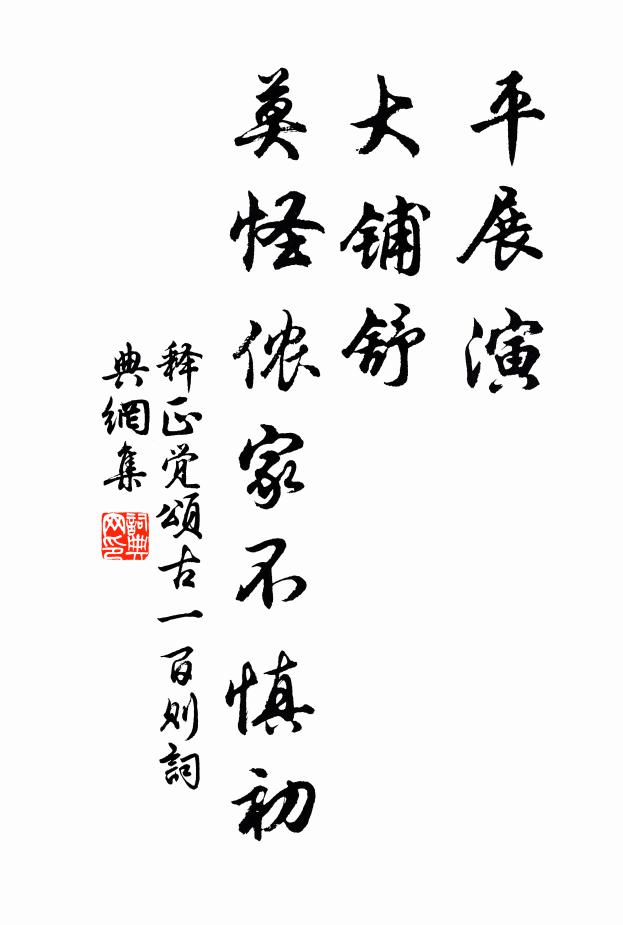 平展演
大铺舒
莫怪侬家不慎初
释正觉颂古一百则詞
典網集
詞典网印